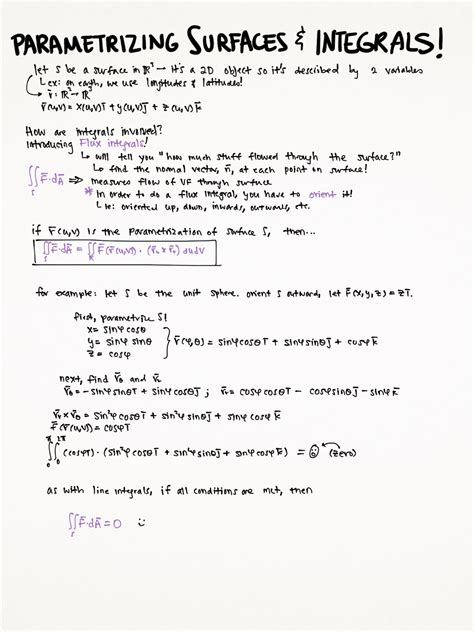 PARAMETRIZING SURFACES & INTEGRALS!
let S be a surface in ℝ³ → it's a 2D object so it's described by 2 variables
↳ ex: on earth, we use longitudes & latitudes!
r̄: ℝ² → ℝ³
r̄(u,v) = x(u,v)ī + y(u,v)j̄ + z(u,v)k̄
How are integrals involved?
Introducing Flux integrals!
↳ will tell you "how much stuff flowed through the surface?"
↳ find the normal vector, n̄, at each point on surface!
∬_S F̄·dĀ ⇒ measures flow of VF through surface
* In order to do a flux integral, you have to orient it!
↳ ie: oriented up, down, inwards, outwards, etc.
if r̄(u,v) is the parametrization of surface S, then...
∬_S F̄·dĀ = ∬_R F̄(r̄(u,v)) · (r̄ᵤ x r̄ᵥ) dudv
for example: let S be the unit sphere. orient S outward, let F̄(x,y,z) = zī.
first, parametrize S!
x = sinφcosθ
y = sinφ sinθ } r̄(φ,θ) = sinφcosθī + sinφsinθj̄ + cosφk̄
z = cosφ
next, find r̄θ and r̄
r̄θ = -sinφsinθī + sinφcosθj̄ ; = cosφcosθī - cosφsinθj̄ - sinφk̄
x r̄θ = sin²φcosθī + sin²φ sinθj̄ + sinφ cosφk̄
F̄(r̄(u,v)) = cosφī
∫₀^π ∫₀^2π (cosφī) · (sin²φ cosθī + sin²φ sinθj̄ + sinφ cosφ k̄) = (zero)
as with line integrals, if all conditions are met, then
∬_S F̄·dĀ = 0 :)